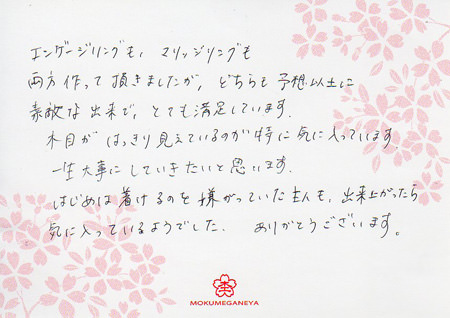 エンゲージリングも、マリッジリングも
両方作って頂きましたが、どちらも予想以上に
素敵な出来で、とても満足しています。
木目がはっきり見えているのが特に気に入っています。
一生大事にしていきたいと思います。
はじめは着けるのを嫌がっていた主人も、出来上がったら
気に入っているようでした。 ありがとうございます。
MOKUMEGANEYA